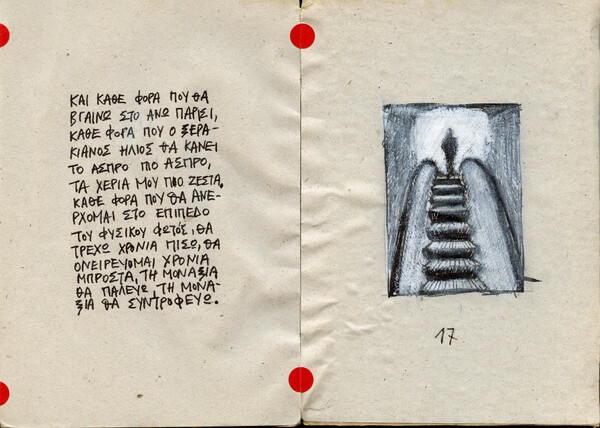 ΚΑΙ ΚΑΘΕ ΦΟΡΑ ΠΟΥ ΘΑ
ΒΓΑΙΝΩ ΣΤΟ ΑΝΩ ΠΑΡΙΣΙ,
ΚΑΘΕ ΦΟΡΑ ΠΟΥ Ο ΞΕΡΑ-
ΚΙΑΝΟΣ ΗΛΙΟΣ ΘΑ ΚΑΝΕΙ
ΤΟ ΑΣΠΡΟ ΠΙΟ ΑΣΠΡΟ,
ΤΑ ΧΕΡΙΑ ΜΟΥ ΠΙΟ ΖΕΣΤΑ,
ΚΑΘΕ ΦΟΡΑ ΠΟΥ ΘΑ ΑΝΕ-
ΡΧΟΜΑΙ ΣΤΟ ΕΠΙΠΕΔΟ
ΤΟΥ ΦΥΣΙΚΟΥ ΦΩΤΟΣ, ΘΑ
ΤΡΕΧΩ ΧΡΟΝΙΑ ΠΙΣΩ, ΘΑ
ΟΝΕΙΡΕΥΟΜΑΙ ΧΡΟΝΙΑ
ΜΠΡΟΣΤΑ, ΤΗ ΜΟΝΑΞΙΑ
ΘΑ ΠΑΛΕΥΩ, ΤΗ ΜΟΝΑ-
ΞΙΑ ΘΑ ΣΥΝΤΡΟΦΕΥΩ.
17